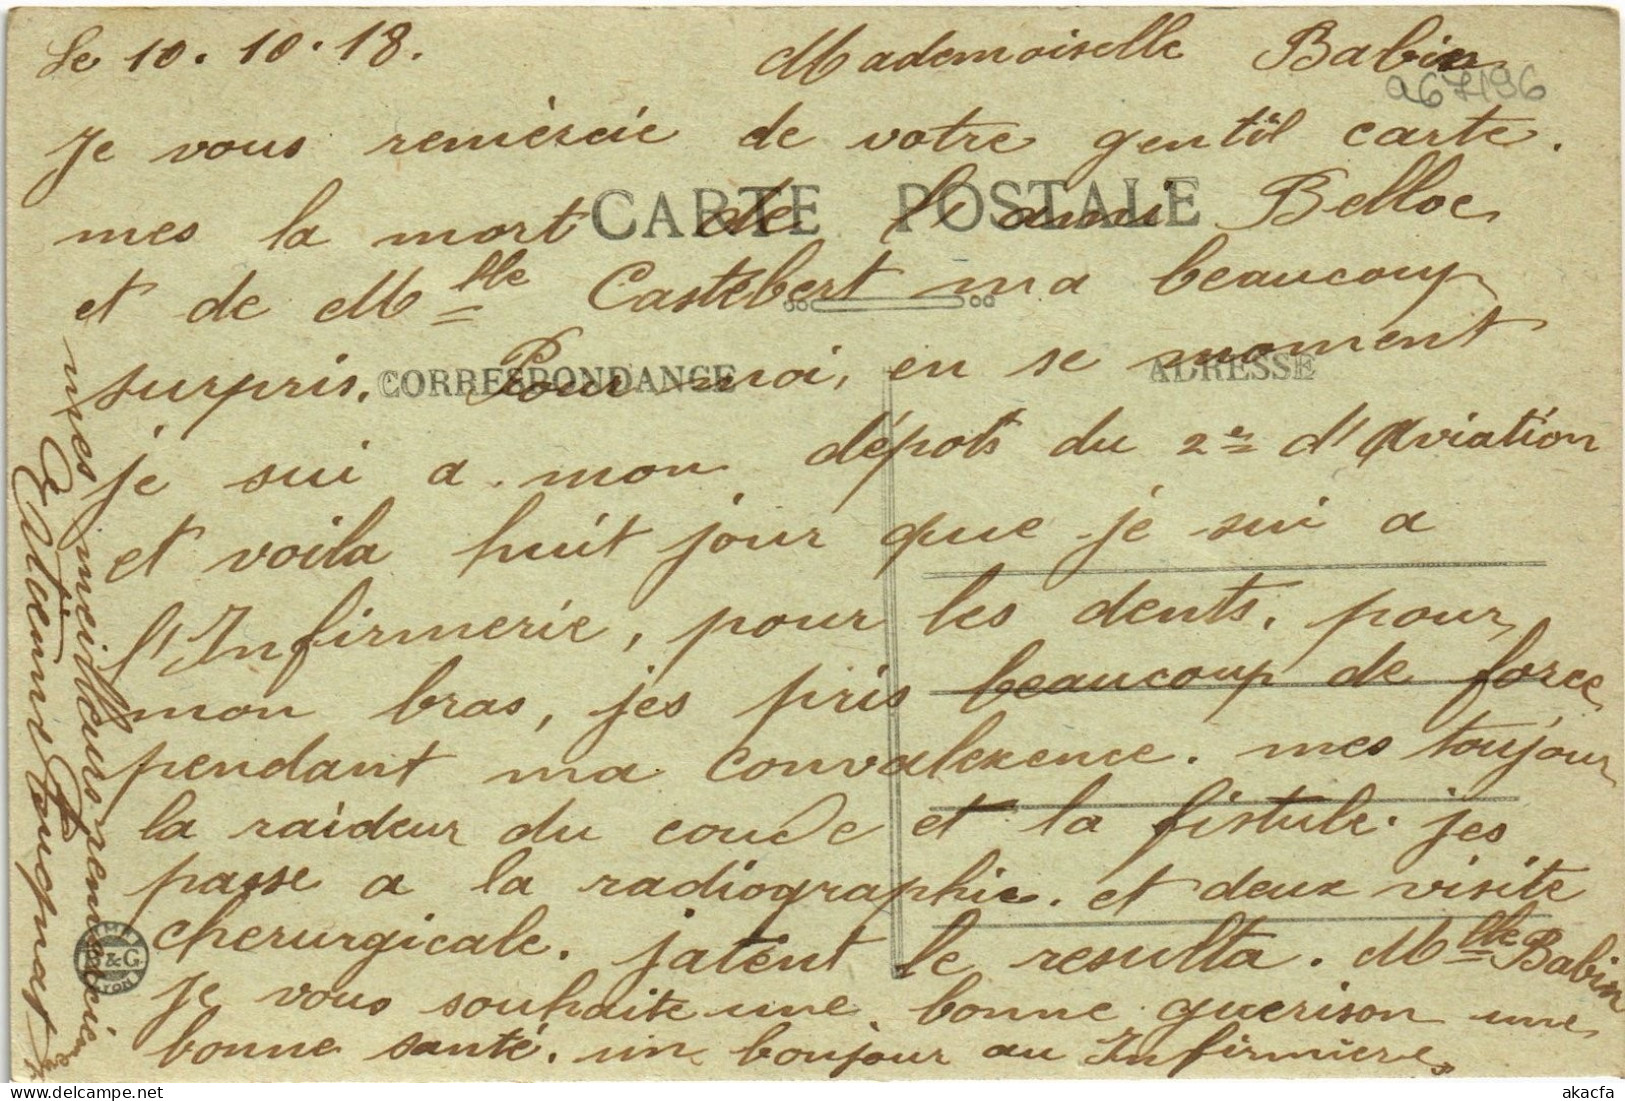 Le 10.10.18.
Mademoiselle Babin
a67196
Je vous remiercie de votre gentil carte.
mes la mort de l'ami Belloc
CARTE POSTALE
et de Mlle Castébert ma beaucoup
surpris. Pour moi, en se moment
CORRESPONDANCE
ADRESSE
je sui a mon dépots du 2e d'Aviation
et voila huit jour que je sui a
l'Infirmerie, pour les dents. pour
mon bras, jes pris beaucoup de force
pendant ma convalexence. mes toujour
la raideur du coude et la fistule. jes
passe a la radiographie. et deux visite
cherurgicale. jatent le resulta. Mlle Babin
Je vous souhaite une bonne guerison une
bonne santé. un bonjour au Infirmieres
mes meilleurs remerciements
Etienne
B&G
LYON
akacfa